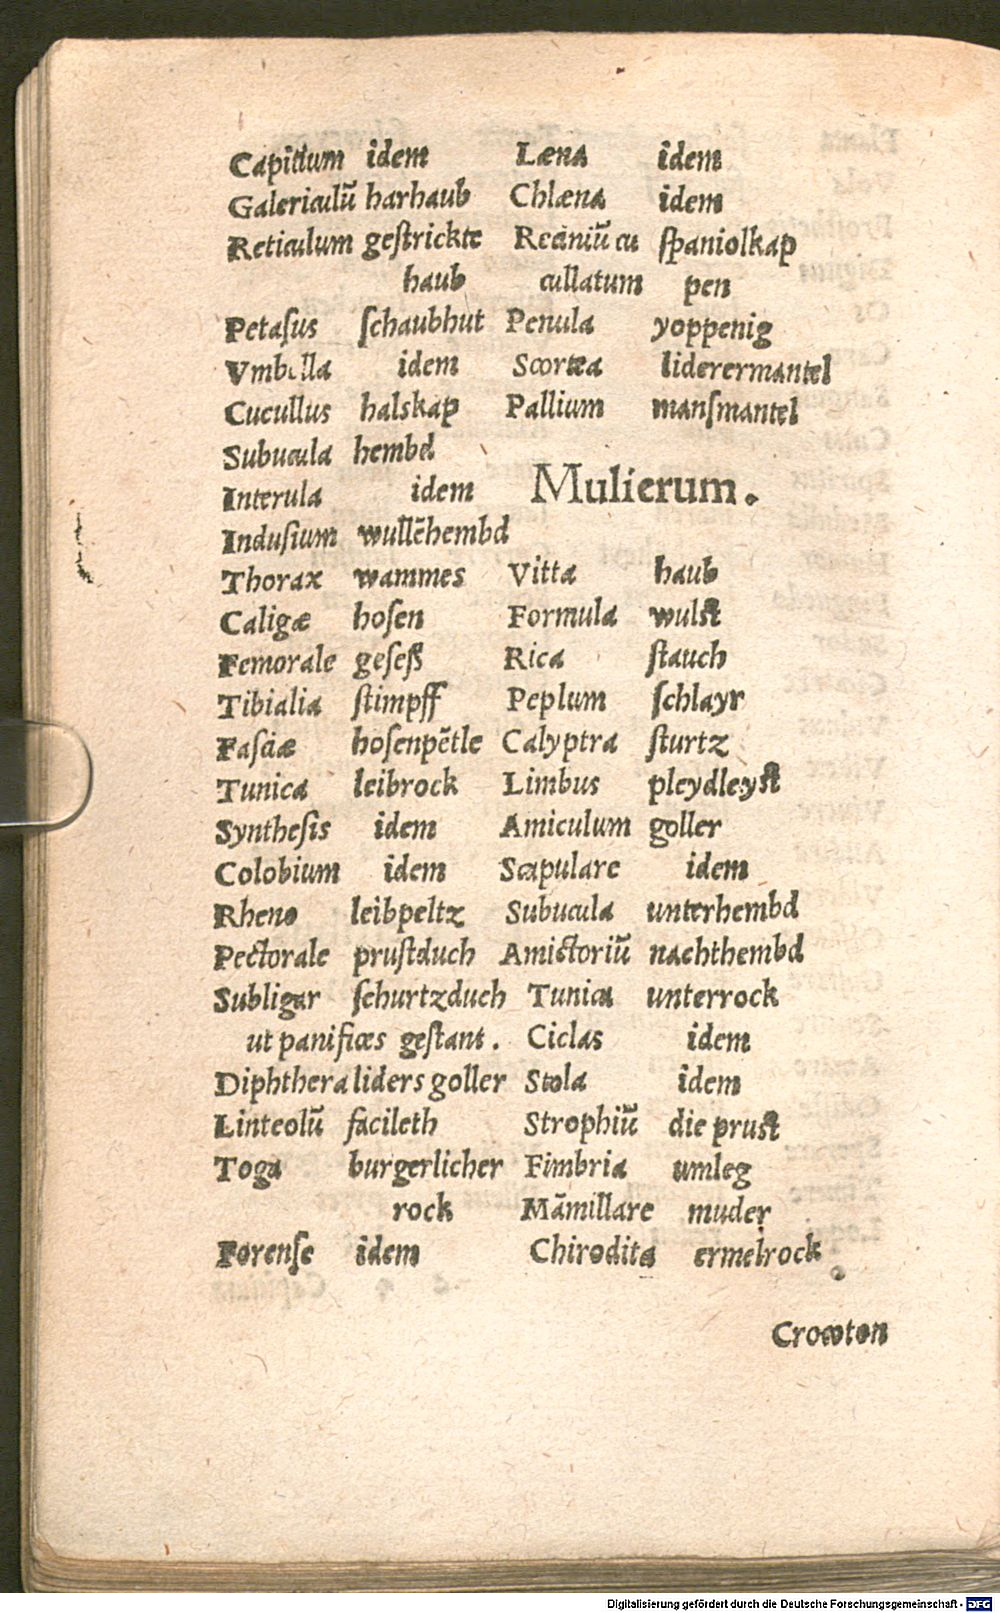 Capitium idem
Galericulū harhaub
Reticulum geſtrickte
haub
Petaſus ſchaubhut
Vmbella idem
Cucullus halskap
Subucula hembd
Interula idem
Induſium wullēhembd
Thorax wammes
Caligæ hoſen
Femorale geſeß
Tibialia ſtimpff
Faſciæ hoſenpētle
Tunica leibrock
Syntheſis idem
Colobium idem
Rheno leibpeltz
Pectorale pruſtduch
Subligar ſchurtzduch
ut panifices geſtant.
Diphthera liders goller
Linteolū facileth
Toga burgerlicher
rock
Forenſe idem
Læna idem
Chlæna idem
Reciniū cu ſpaniolkap
cullatum pen
Penula yoppenig
Scortea liderermantel
Pallium manſmantel
Mulierum.
Vitta haub
Formula wulſt
Rica ſtauch
Peplum ſchlayr
Calyptra ſturtz
Limbus pleydleyſt
Amiculum goller
Scapulare idem
Subucula unterhembd
Amictoriū nachthembd
Tunica unterrock
Ciclas idem
Stola idem
Strophiū die pruſt
Fimbria umleg
Māmillare muder
Chirodita ermelrock
Crocoton
Digitalisierung gefördert durch die Deutsche Forschungsgemeinschaft - DFG